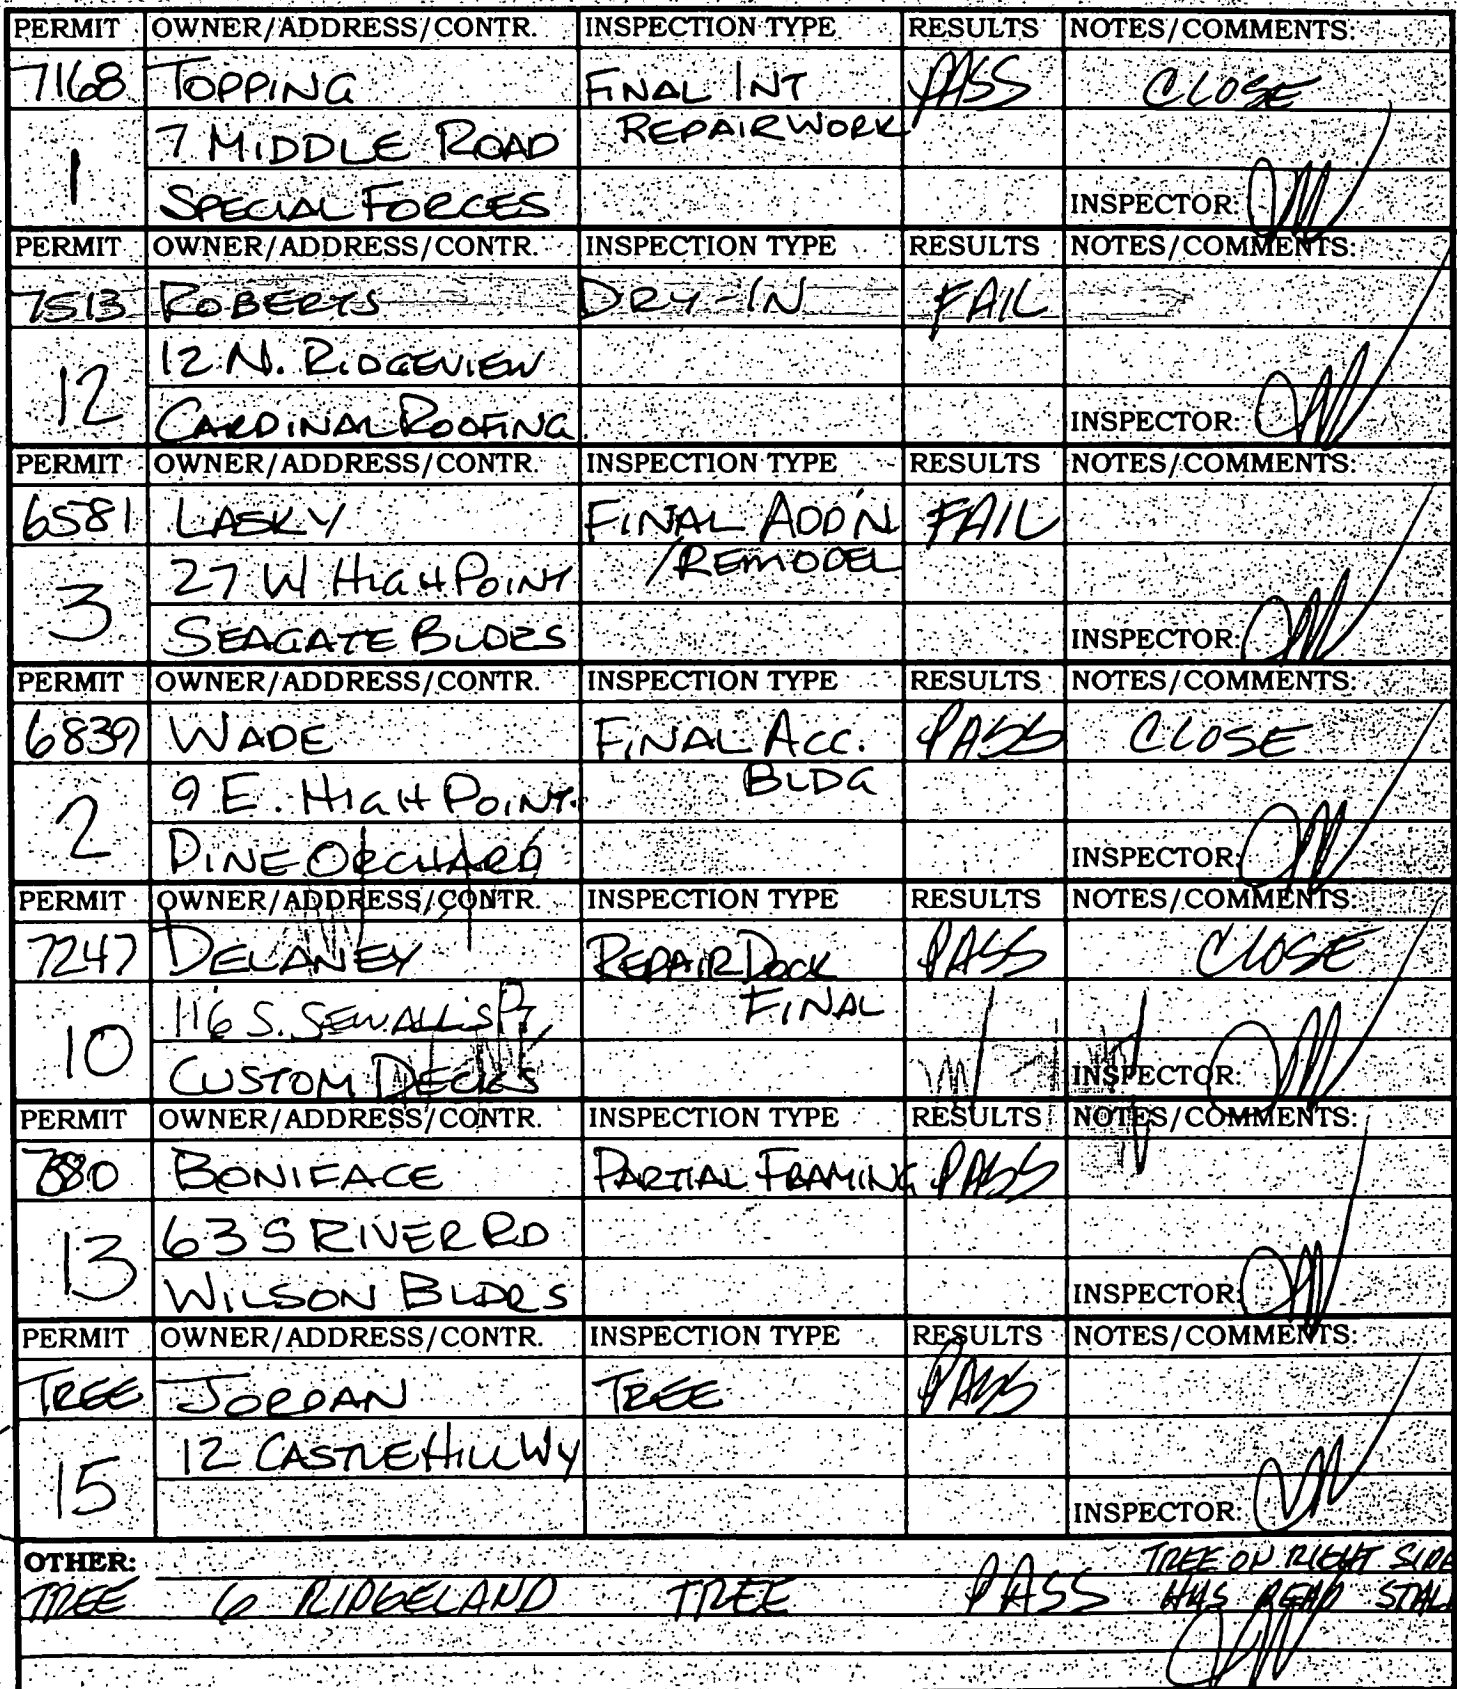 PERMIT OWNER/ADDRESS/CONTR. INSPECTION TYPE RESULTS NOTES/COMMENTS:
7168 TOPPING FINAL INT PASS CLOSE
1 7 MIDDLE ROAD REPAIR WORK
SPECIAL FORCES INSPECTOR:
PERMIT OWNER/ADDRESS/CONTR. INSPECTION TYPE RESULTS NOTES/COMMENTS:
7513 ROBERTS DRY-IN FAIL
12 12 N. RIDGEVIEW
CARDINAL ROOFING INSPECTOR:
PERMIT OWNER/ADDRESS/CONTR. INSPECTION TYPE RESULTS NOTES/COMMENTS:
6581 LASKY FINAL ADD'N FAIL
3 27 W HIGH POINT /REMODEL
SEAGATE BLDRS INSPECTOR:
PERMIT OWNER/ADDRESS/CONTR. INSPECTION TYPE RESULTS NOTES/COMMENTS:
6839 WADE FINAL ACC. PASS CLOSE
2 9 E. HIGH POINT BLDG
PINE ORCHARD INSPECTOR:
PERMIT OWNER/ADDRESS/CONTR. INSPECTION TYPE RESULTS NOTES/COMMENTS:
7247 DELANEY REPAIR DOCK PASS CLOSE
10 116 S. SEWALL'S PT FINAL
CUSTOM DECKS INSPECTOR:
PERMIT OWNER/ADDRESS/CONTR. INSPECTION TYPE RESULTS NOTES/COMMENTS:
BONIFACE PARTIAL FRAMING PASS
13 63 S RIVER RD
WILSON BLDRS INSPECTOR:
PERMIT OWNER/ADDRESS/CONTR. INSPECTION TYPE RESULTS NOTES/COMMENTS:
TREE JORDAN TREE PASS
15 12 CASTLE HILL WY
INSPECTOR:
OTHER: TREE ON RIGHT SIDE
TREE 6 RIDGELAND TREE PASS HAS